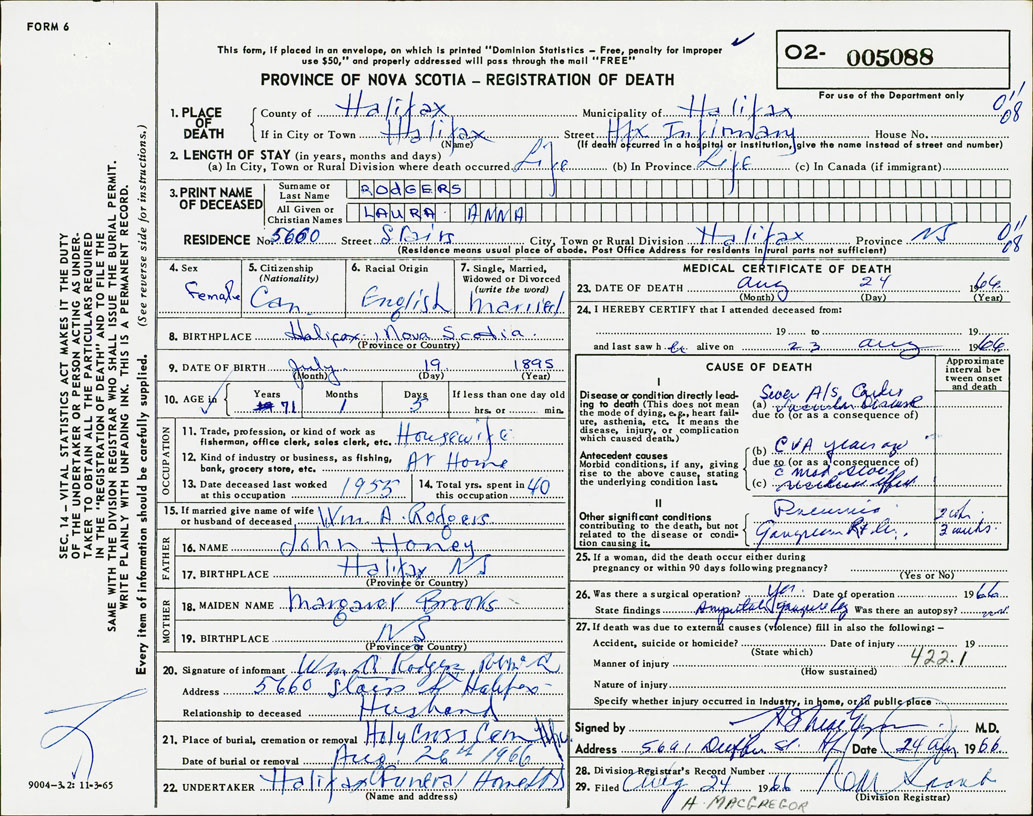 FORM 6
This form, if placed in an envelope, on which is printed "Dominion Statistics – Free, penalty for improper
use $50," and properly addressed will pass through the mail "FREE"
O2- 005088
For use of the Department only
PROVINCE OF NOVA SCOTIA – REGISTRATION OF DEATH
1. PLACE OF DEATH
County of Halifax Municipality of Halifax 011 08
If in City or Town Halifax Street Hfx Infirmary House No.
(Name) (If death occurred in a hospital or institution, give the name instead of street and number)
2. LENGTH OF STAY (in years, months and days)
(a) In City, Town or Rural Division where death occurred Life (b) In Province Life (c) In Canada (if immigrant)
3. PRINT NAME OF DECEASED
Surname or Last Name RODGERS
All Given or Christian Names LAURA ANNA
RESIDENCE No. 5660 Street Stairs City, Town or Rural Division Halifax Province NS 011 08
(Residence means usual place of abode. Post Office Address for residents in rural parts not sufficient)
4. Sex Female
5. Citizenship (Nationality) Can.
6. Racial Origin English
7. Single, Married, Widowed or Divorced (write the word) Married
8. BIRTHPLACE Halifax, Nova Scotia.
(Province or Country)
9. DATE OF BIRTH July 19 1895
(Month) (Day) (Year)
10. AGE in Years 71 Months 1 Days 5 If less than one day old
hrs. or min.
OCCUPATION
11. Trade, profession, or kind of work as
fisherman, office clerk, sales clerk, etc. Housewife
12. Kind of industry or business, as fishing,
bank, grocery store, etc. At Home
13. Date deceased last worked
at this occupation 1955
14. Total yrs. spent in
this occupation 40
15. If married give name of wife
or husband of deceased Wm. A. Rodgers
FATHER
16. NAME John Honey
17. BIRTHPLACE Halifax NS
(Province or Country)
MOTHER
18. MAIDEN NAME Margaret Brooks
19. BIRTHPLACE NS
(Province or Country)
20. Signature of informant Wm A Rodgers
Address 5660 Stairs St Halifax
Relationship to deceased Husband
21. Place of burial, cremation or removal Holy Cross Cem
Date of burial or removal Aug. 26th 1966
22. UNDERTAKER Halifax Funeral Home
(Name and address)
MEDICAL CERTIFICATE OF DEATH
23. DATE OF DEATH Aug 24 1966
(Month) (Day) (Year)
24. I HEREBY CERTIFY that I attended deceased from:
19 to 19
and last saw h er alive on 23 Aug 1966
CAUSE OF DEATH
Approximate interval between onset and death
I
Disease or condition directly leading to death (This does not mean
the mode of dying, e.g., heart failure, asthenia, etc. It means the
disease, injury, or complication
which caused death.)
(a) Sever A/S Cardio
vascular Disease
due to (or as a consequence of)
Antecedent causes
Morbid conditions, if any, giving
rise to the above cause, stating
the underlying condition last.
(b) CVA years ago
due to (or as a consequence of)
(c)
II
Other significant conditions
contributing to the death, but not
related to the disease or condition causing it.
Gangrene Rt 3 weeks
25. If a woman, did the death occur either during
pregnancy or within 90 days following pregnancy?
(Yes or No)
26. Was there a surgical operation? Yes Date of operation 1966
State findings Was there an autopsy?
27. If death was due to external causes (violence) fill in also the following: –
Accident, suicide or homicide? Date of injury 19
(State which) 422.1
Manner of injury
(How sustained)
Nature of injury
Specify whether injury occurred in Industry, in home, or in public place
Signed by M.D.
Address 5691 St. Date 24 Aug 1966
28. Division Registrar's Record Number
29. Filed Aug 24 1966
(Division Registrar)
A. MACGREGOR
SEC. 14 – VITAL STATISTICS ACT MAKES IT THE DUTY
OF THE UNDERTAKER OR PERSON ACTING AS UNDERTAKER TO OBTAIN ALL THE PARTICULARS REQUIRED
IN THE "REGISTRATION OF DEATH" AND TO FILE THE
SAME WITH THE DIVISION REGISTRAR WHO SHALL ISSUE THE BURIAL PERMIT.
WRITE PLAINLY WITH UNFADING INK. THIS IS A PERMANENT RECORD.
Every item of information should be carefully supplied. (See reverse side for instructions.)
9004–3.2: 11-3-65